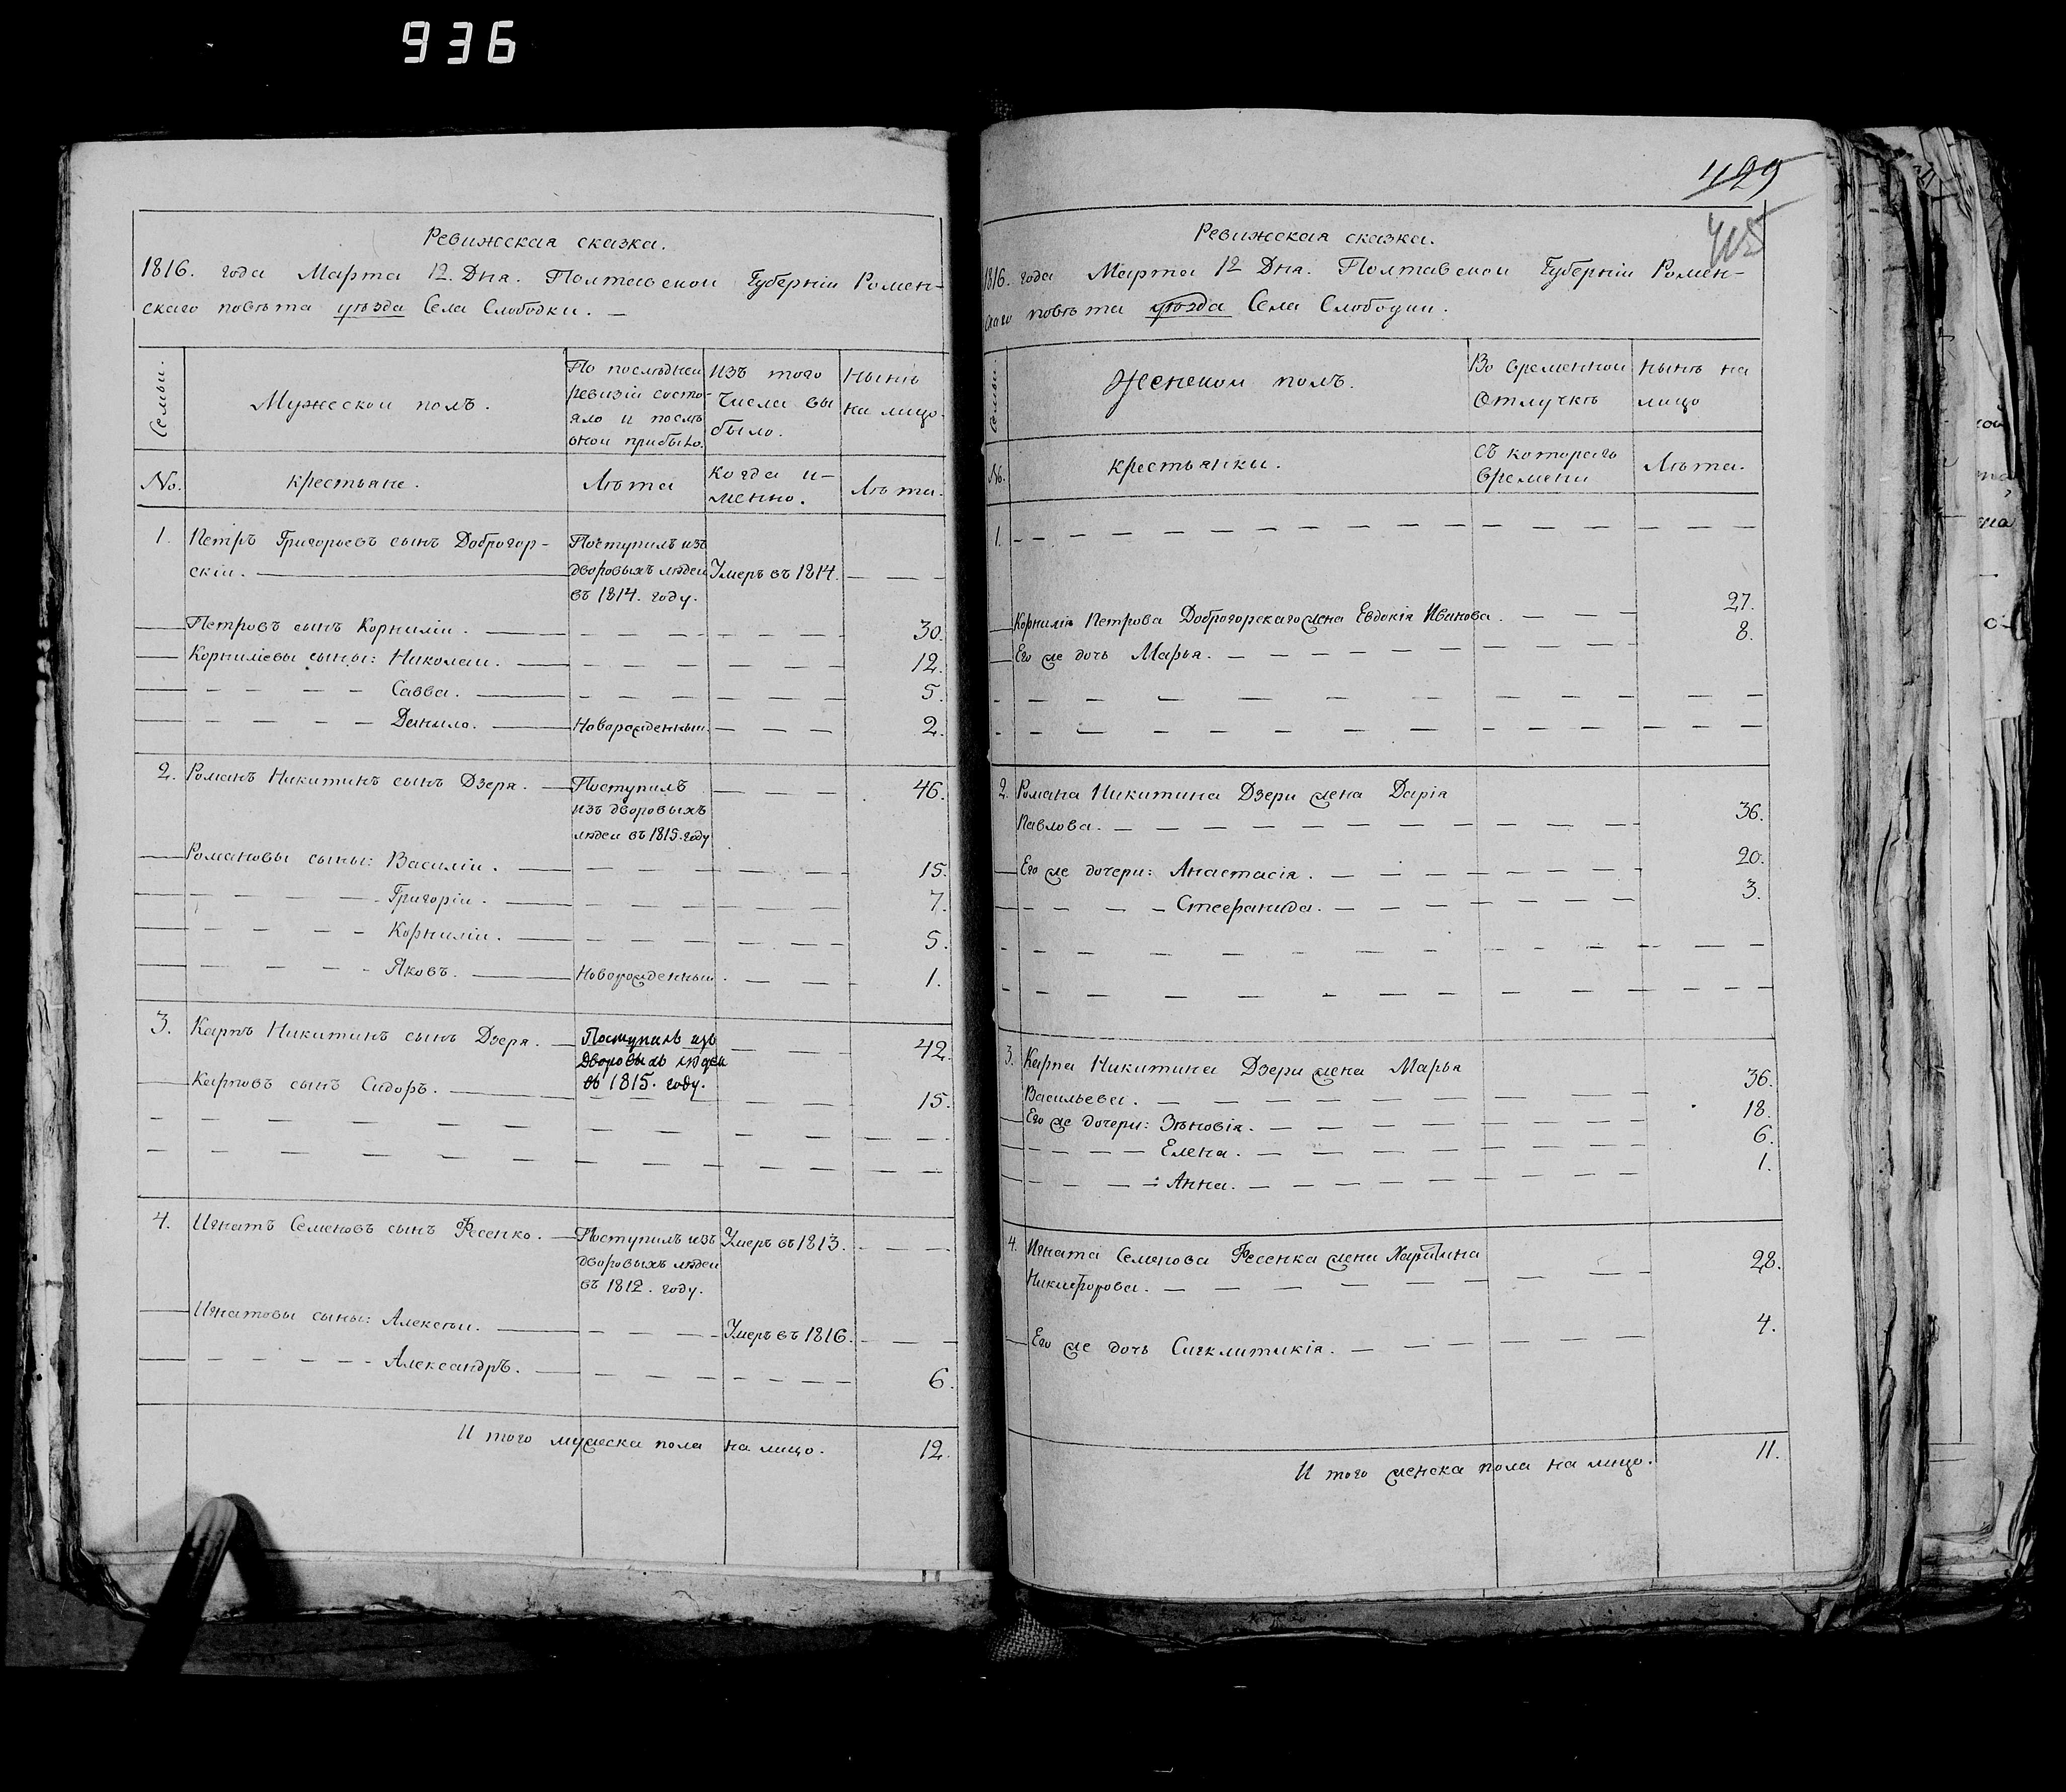 936
Ревижская сказка.
1816. года Марта 12. Дня. Полтавской Губерніи Ромен-
скаго повѣта уѣзда Села Слободки. —
Семьи. Мужеской полъ. По послѣдней ревизіи состо-яло и послѣ оной прибыло. Изъ того числа вы было. Нынѣ на лицо.
No. крестьяне. Лѣта Когда и-менно. Лѣта.
1. Петръ Григорьевъ сынъ Доброгор- Поступилъ изъ
скій. дворовыхъ людей Умеръ въ 1814.
въ 1814. году.
Петровъ сынъ Корнилій. 30.
Корниліевы сыны: Николай. 12.
Савва. 5.
Данило. Новорожденный. 2.
2. Романъ Никитинъ сынъ Дзеря. Поступилъ 46.
изъ дворовыхъ
людей въ 1815. году
Романовы сыны: Василій. 15.
Григорій. 7.
Корнилій. 5.
Яковъ. Новорожденный. 1.
3. Карпъ Никитинъ сынъ Дзеря. Поступилъ изъ 42.
дворовыхъ людей
Карповъ сынъ Сидоръ. въ 1815. году. 15.
4. Игнатъ Семеновъ сынъ Фесенко. Поступилъ изъ Умеръ въ 1813.
дворовыхъ людей
въ 1812. году.
Игнатовы сыны: Алексѣй. Умеръ въ 1816.
Александръ. 6.
И того мужеска пола на лицо. 12.
429
Ревижская сказка.
1816. года Марта 12 Дня. Полтавской Губерніи Ромен-
скаго повѣта уѣзда Села Слободки.
Семьи. Женской полъ. Во временной Отлучкѣ Нынѣ на лицо
No. крестьянки. Съ котораго времени Лѣта.
1.
Корнилія Петрова Доброгорскаго жена Евдокія Иванова. 27.
Его же дочь Марья. 8.
2. Романа Никитина Дзери жена Дарія
Павлова. 36.
Его же дочери: Анастасія. 20.
Стефанида. 3.
3. Карпа Никитина Дзери жена Марья
Васильева. 36.
Его же дочери: Зѣновія. 18.
Елена. 6.
Анна. 1.
4. Игната Семенова Фесенка жена
Никифорова. 28.
Его же дочь Сигклитикія. 4.
И того женска пола на лицо. 11.